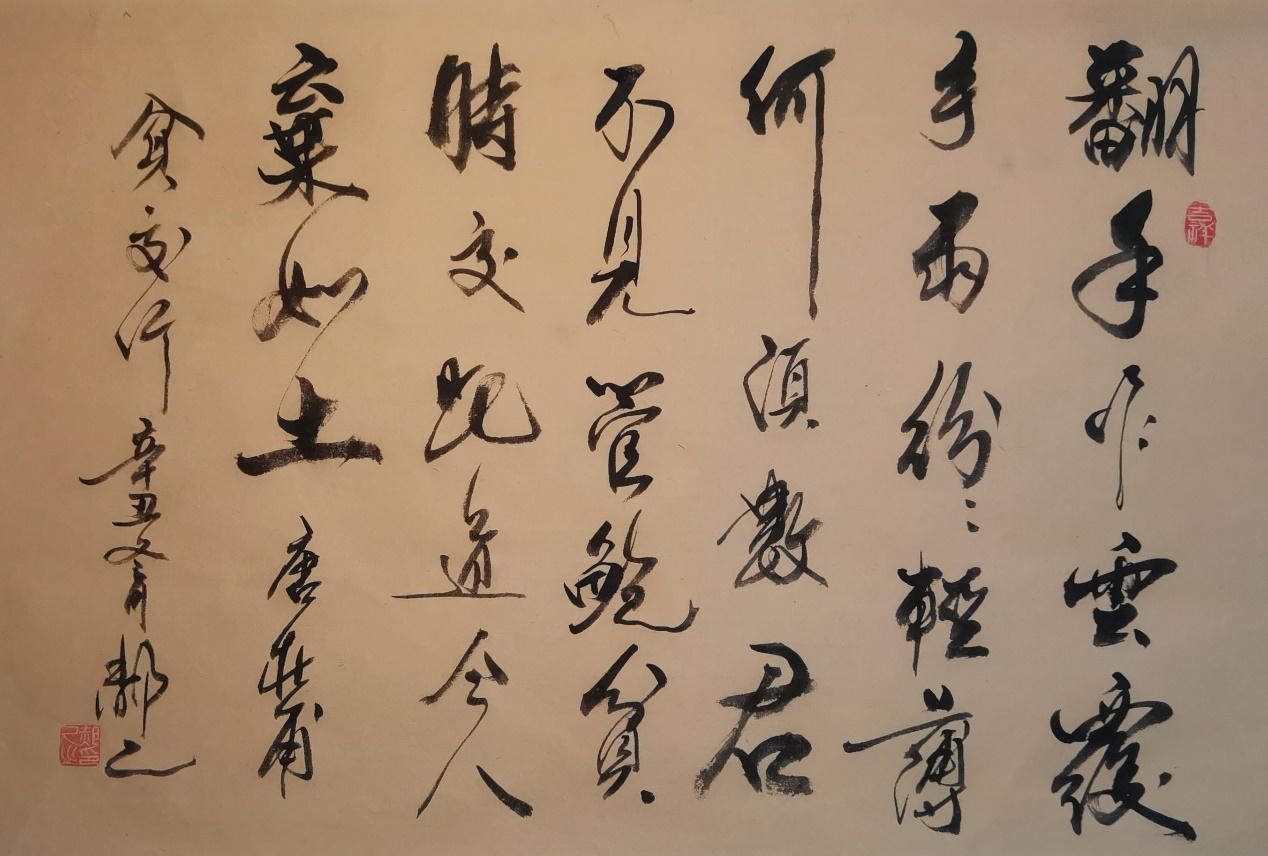 翻手作雲覆
吉祥
手雨紛〻輕薄
何須數君
不見管鮑貧
時交此道今人
棄如土 唐杜甫
貧交行 辛丑冬月